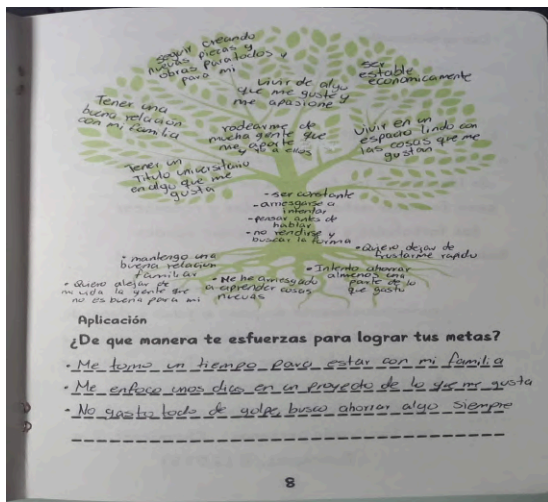 seguir creando
nuevas piezas y
obras para todos y
para mi
ser
estable
economicamente
vivir de algo
que me guste y
me apasione
Tener una
buena relacion
con mi familia
rodearme de
mucha gente que
me aporte
y yo a ellos
vivir en un
espacio lindo con
las cosas que me
gustan
Tener un
Titulo universitario
en algo que me
gusta
- ser constante
- arriesgarse a
intentar
- pensar antes de
hablar
- no rendirse y
buscar la forma
• mantengo una
buena relacion
familiar
• Quiero dejar de
frustarme rapido
• Quiero alejar de
mi vida la gente que
no es buena para mi
• Me he arriesgado
a emprender cosas
nuevas
• Intento ahorrar
almenos una
parte de lo
que gasto
Aplicación
¿De que manera te esfuerzas para lograr tus metas?
• Me tomo un tiempo para estar con mi familia
• Me enfoco unos dias en un proyecto de lo que me gusta
• No gasto todo de golpe, busco ahorrar algo siempre
8